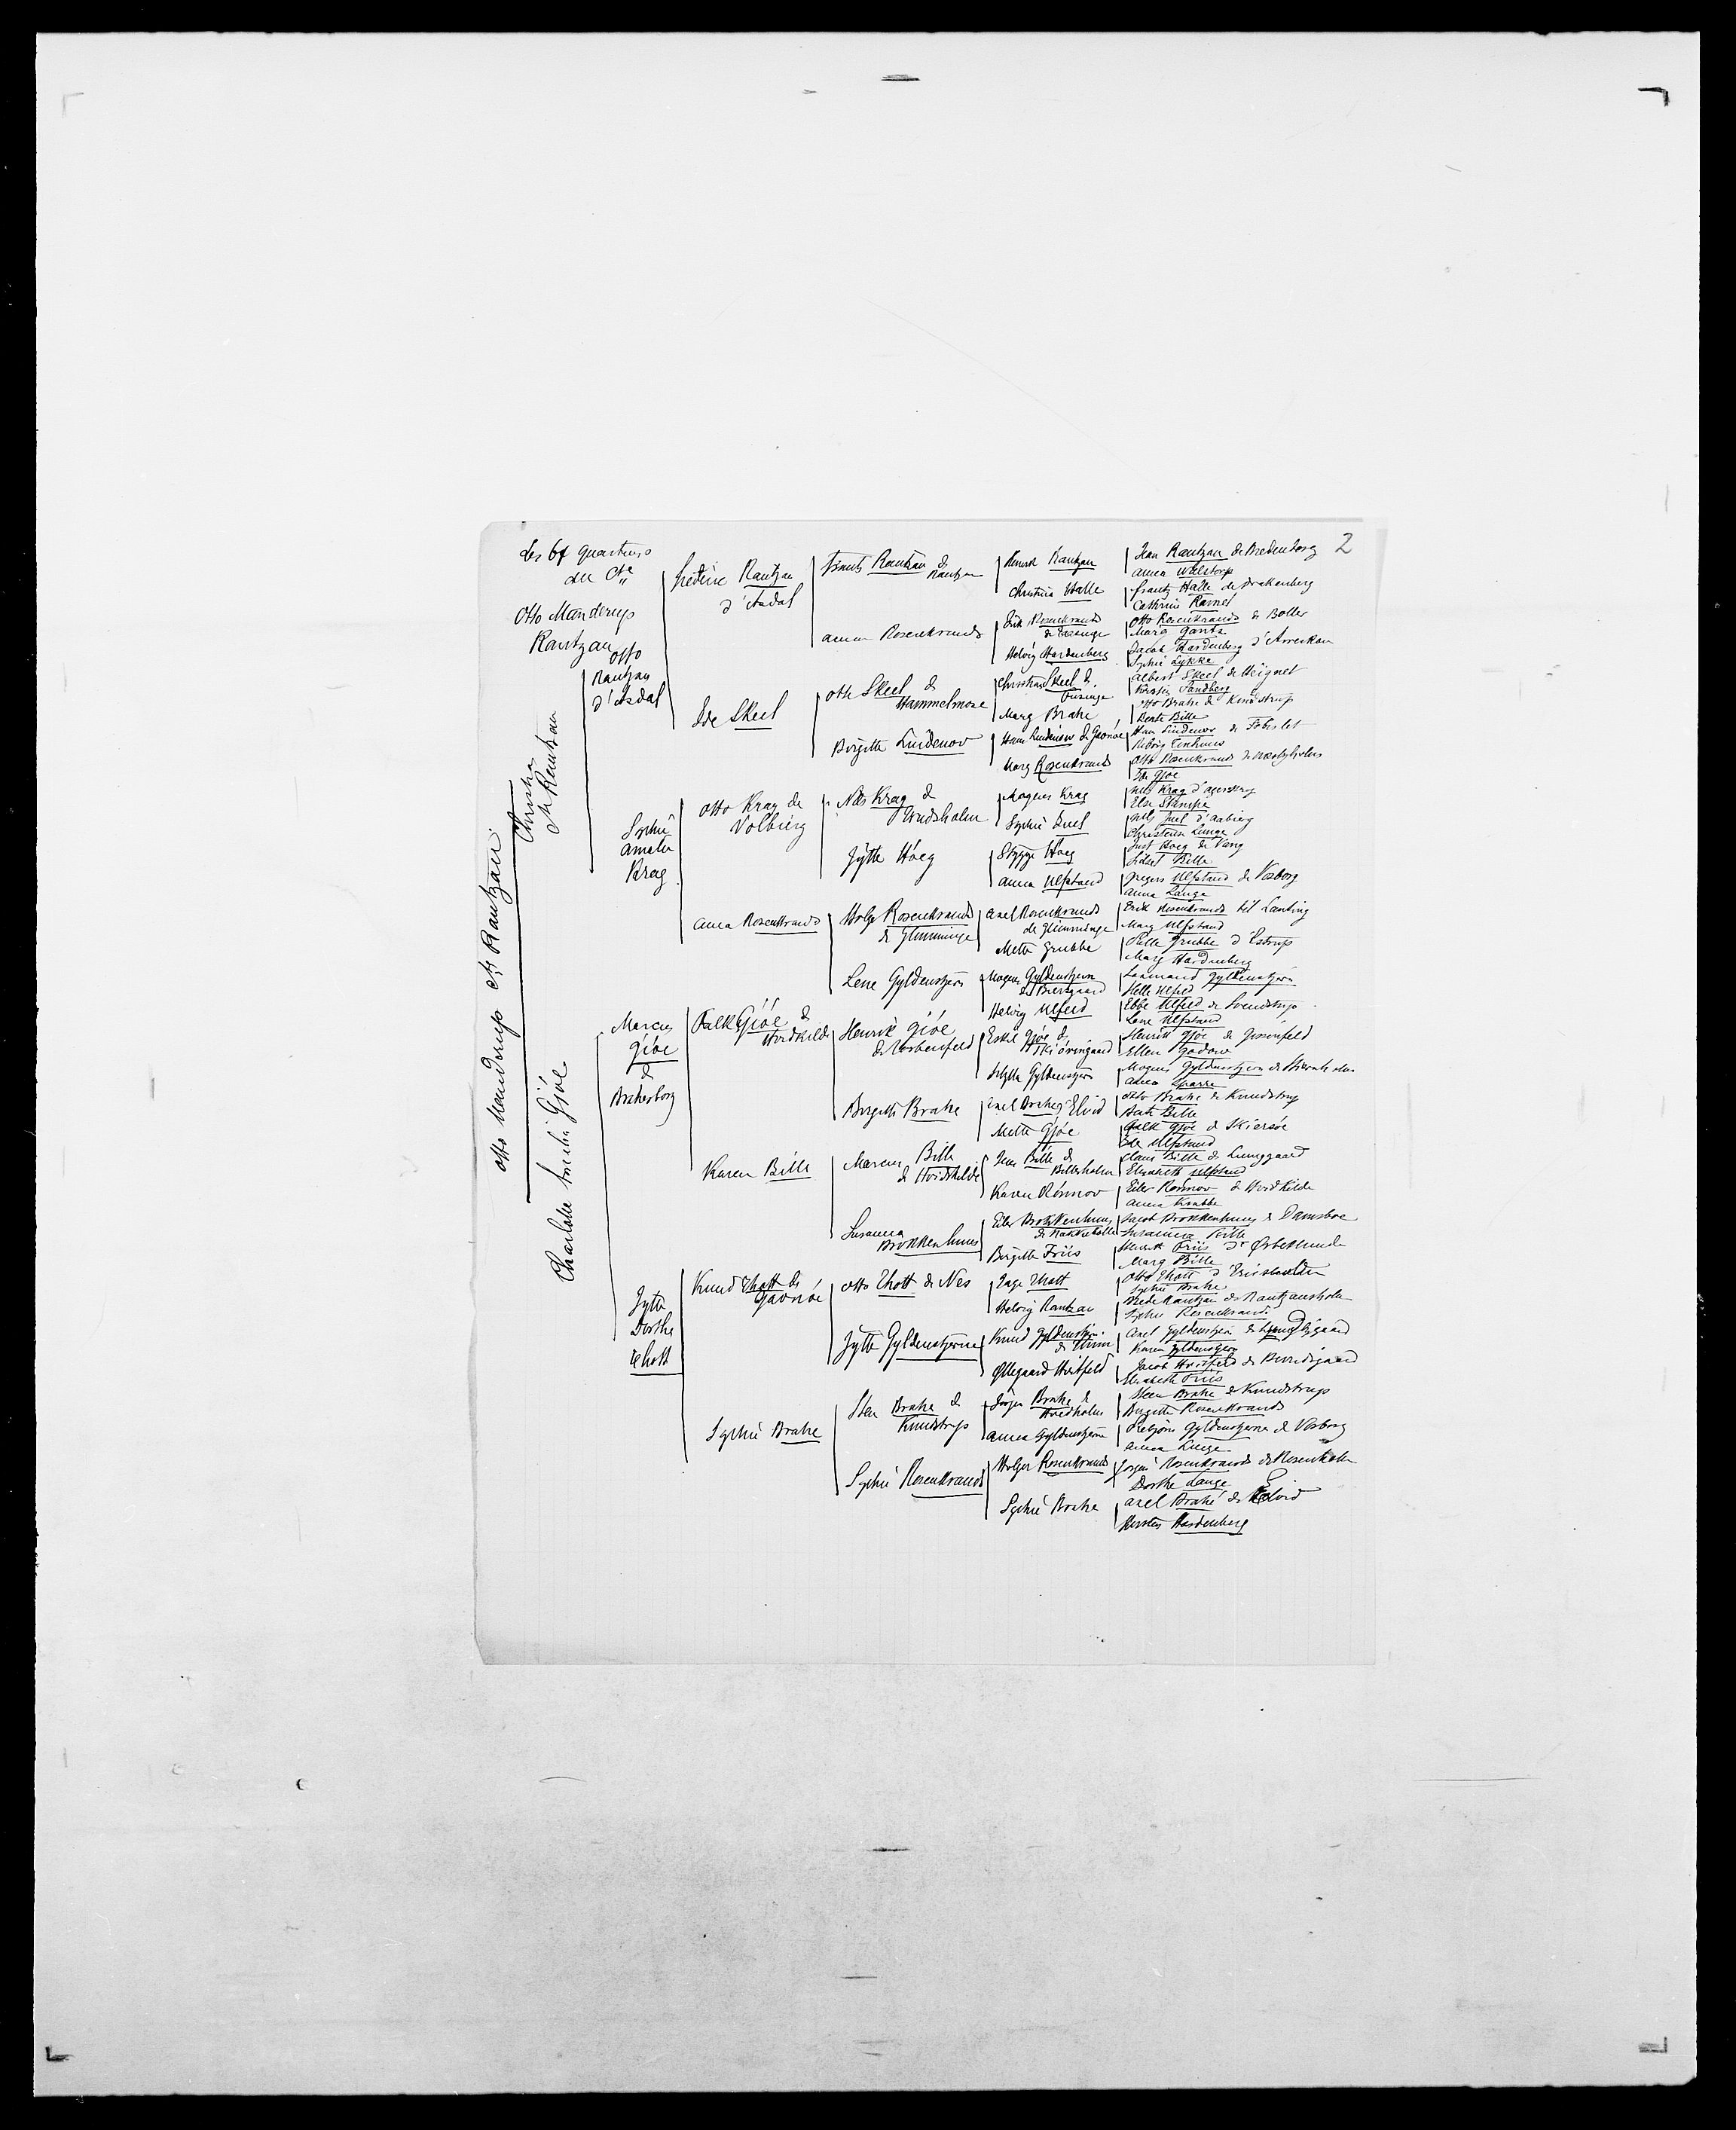 2
des 64 quartiers
du Cte
Otto Manderup
Rantzau
Otto Manderup Cte Rantzau
Christian
Cte Rantzau
Charlotte Amelie Gjöe
Otto
Rantzau
d'Asdal
Sophie
Amalie
Krag
Marcus
Gjöe
de
Brekerborg
Jytte
Dorthe
Thott
frederic Rantzau
d'Asdal
Ide Skeel
Otto Krag de
Volbierg
Anna Rosenkrands
Falk Gjöe de
Hvidkilde
Karen Bille
Knud Thott de
Gavnöe
Sophie Brahe
Frants Rantzau de
Rantzau
Anna Rosenkrands
Otto Skeel de
Hammelmose
Birgitte Lindenov
Niels Krag de
Trudsholm
Jytte Höeg
Holger Rosenkrands
de Glimminge
Lene Gyldenstjern
Henrik Gjöe
de
Birgitte Brahe
Marcus Bille
de Hvidkilde
Susanna
Brokkenhuus
Otto Thott de Nes
Jytte Gyldenstjerne
Sten Brahe de
Knudstrup
Sophie Rosenkrands
Henrik Rantzau
Christina Halle
Erik Rosenkrands
de
Helvig Hardenberg
Christian Skeel de
Fusinge
Marg Brahe
Hans Lindenow de Gavnöe
Marg Rosenkrands
Mogens Krag
Sophie Juel
Stygge Höeg
Anna Ulfstand
Axel Rosenkrands
de Glimminge
Mette Grubbe
Mogens Gyldenstjern
de
Helvig Ulfeld
Eskil Gjöe de
Skiöringaard
Sibylle Gyldenstjern
Axel Brahe de Elvid
Mette Gjöe
Jens Bille de
Billesholm
Karen Rönnov
Eiler Brokkenhuus
de Nakkebölle
Birgitte Friis
Tage Thott
Helvig Rantzau
Knud Gyldenstjern
de Thim
Öllegaard Hvitfeld
Jörgen Brahe de
Hvedholm
Anna Gyldenstjerne
Holger Rosenkrands
Sophie Brahe
Jean Rantzau de Bredenborg
Anna Walstorp
Frantz Halle de Drakenberg
Cathrine Ramel
Otto Rosenkrands de Boller
Marg Gantz
Jacob Hardenberg d'Arreskou
Sophie Lykke
Albert Skeel de
Kirstin Sandberg
Otto Brahe de Knudstrup
Beate Bille
Hans Lindenov de Föbislet
Otto Rosenkrands de Næsbyholm
Ide Gjöe
Niels Krag d'Agerkrog
Else Stampe
Niels Juel d'Aabierg
Christence Lunge
Just Hoeg de Vang
Lidsel Bille
Gregers Ulfstand de Vosborg
Anna Lange
Erik Rosenkrands til Lanting
Marg Ulfstand
Palle Grubbe d'Estrup
Marg Hardenberg
Laxmand Gyldenstjern
Helle Ulfeld
Ebbe Ulfeld de Svenstrup
Lene Ulfstand
Henrik Gjöe de
Ellen Gadow
Mogens Gyldenstjern de Stiernholm
Anna Sparre
Otto Brahe de Knudstrup
Beate Bille
Falk Gjöe de Skiersöe
Ide Ulfstand
Claus Bille de Lunggaard
Elisabeth Ulfstand
Eiler Rönnow de Hvidkilde
Anna Krabbe
Jacob Brokkenhuus de Damsboe
Susanna Bille
Henrik Friis d'Örbeklunde
Marg Bille
Otto Thott d'Eriksholm
Sophie Brahe
Brede Rantzau de Rantzausholm
Sophie Rosenkrands
Axel Gyldenstjern de Lyngbygaard
Karin Gyldenstjern
Jacob Hvitfeld de
Elisabeth Friis
Steen Brahe de Knudstrup
Birgitte Rosenkrands
Prebjörn Gyldenstjerne de Vosborg
Anna Lunge
Jörgen Rosenkrands de Rosenholm
Dorthe Lange
Axel Brahé de Elvid
Kirsten Hardenberg